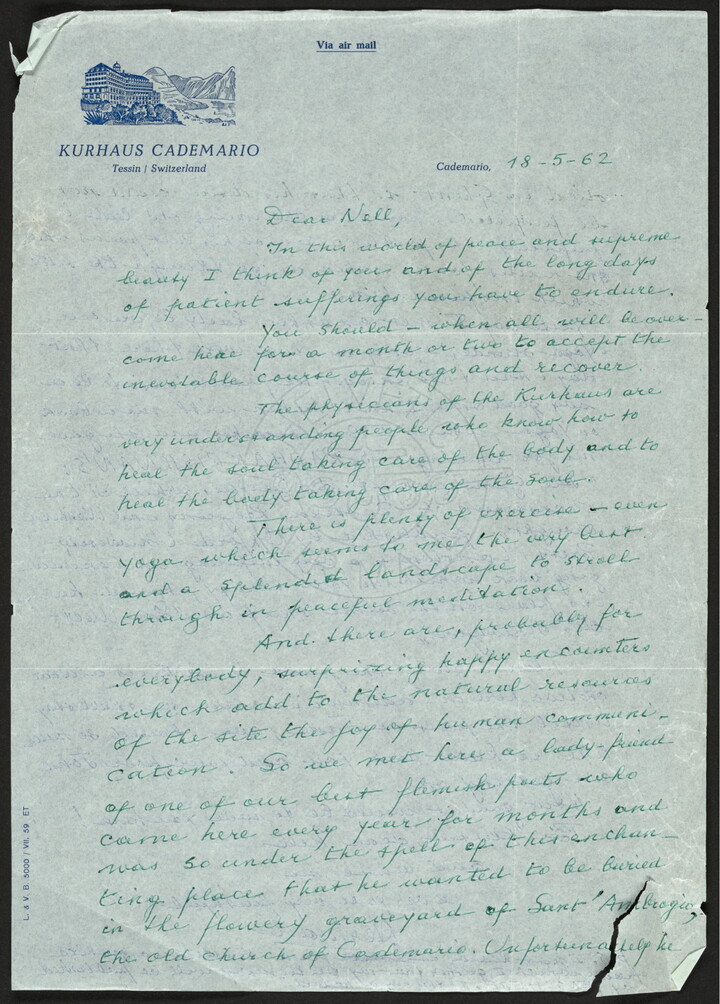 Via air mail
KURHAUS CADEMARIO
Tessin / Switzerland
Cademario, 18-5-62
Dear Nell,
In this world of peace and supreme
beauty I think of you and of the long days
of patient sufferings you have to endure.
You should – when all will be over –
come here for a month or two to accept the
inevitable course of things and recover.
The physicians of the Kurhaus are
very understanding people who know how to
heal the soul taking care of the body and to
heal the body taking care of the soul.
There is plenty of exercise – even
yoga which seems to me the very best
and a splendid landscape to stroll
through in peaceful meditation.
And there are, probably for
everybody, surprizing happy encounters
which add to the natural resources
of the site the joy of human communi-
cation. So we met here a lady-friend
of one of our best flemish poets who
came here every year for months and
was so under the spell of this enchan-
ting place that he wanted to be buried
in the flowery graveyard of Sant' Ambrogio,
the old church of Cademario. Unfortunately he
L. & V. B. 5000 / VII. 59 ET